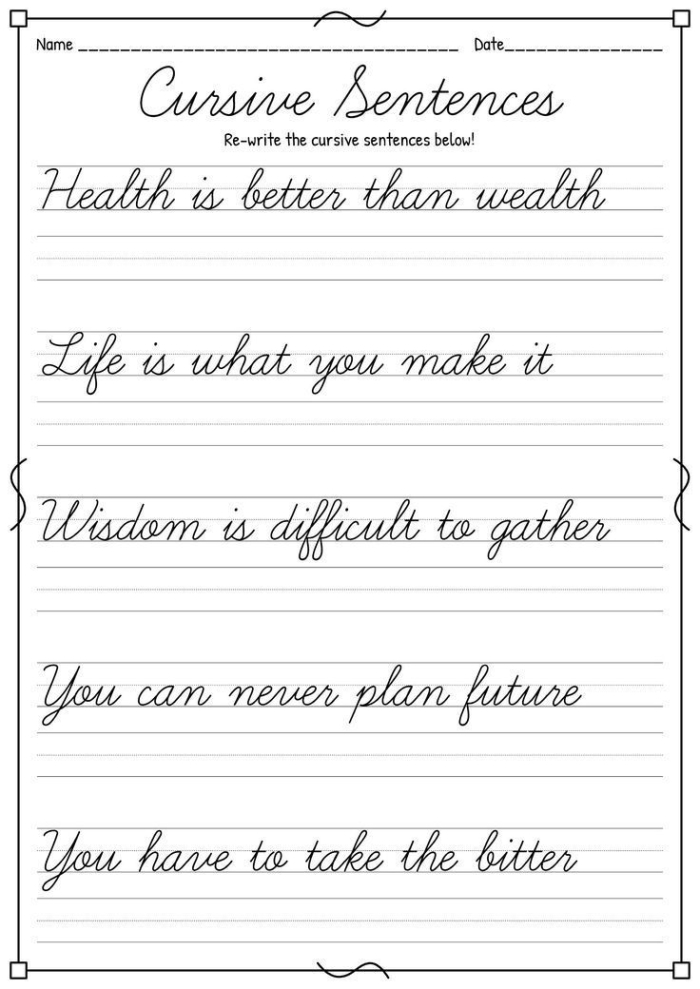 Name ____________________________________ Date_______________
Cursive Sentences
Re-write the cursive sentences below!
Health is better than wealth
Life is what you make it
Wisdom is difficult to gather
You can never plan future
You have to take the bitter